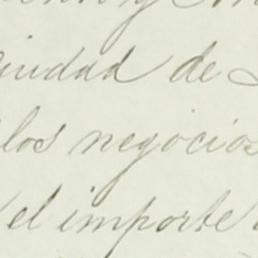 Ciudad de
los negocios
el importe